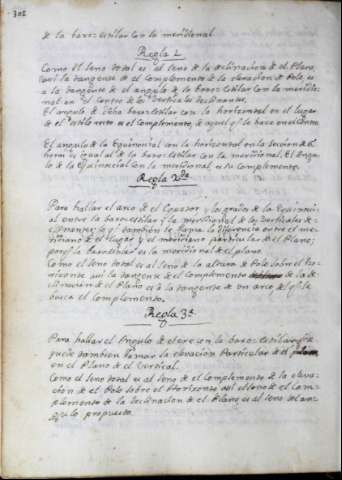 302
de la barra estilar con la meridional.
Regla 1.
Como el seno total es al seno de la declinacion de el Plano,
assi la tangente de el complemento de la elevacion de Polo, es
a la tangente de el angulo de la barra estilar con la meridio-
nal en el centro de verticales declinantes.
El angulo de barra estilar con la horizontal en el lugar
de el estilo recto es el complemento, de aquel que se hace en el centro
El angulo de la Equinoccial con la horizontal en la seccion de
hora es igual al de la barra estilar con la meridional. El Angu-
lo de la Equinoccial con la meridional es su complemento.
Regla 2da
Para hallar el arco de el Equador, y los grados de la Equinocci-
al entre la barra estilar y la meridional de los verticales de-
clinantes, que tambien se llama la diferencia entre el me-
ridiano de el lugar, y el meridiano particular de el Plano;
porque la barra estilar es la meridional de el plano.
Como el seno total es al seno de la altura de Polo sobre el Ho-
rizonte assi la tangente de el complemento de la de-
clinacion de el Plano es a la tangente de un arco de que se
busca el complemento.
Regla 3a
Para hallar el Angulo de el exe con la barra estilar, que se
puede tambien llamar la elevacion Particular de el polo
en el Plano de el vertical.
Como el seno total es al seno de el complemento de la eleva-
cion de el Polo sobre el Horizonte assi el seno de el com-
plemento de la declinacion de el Plano es al seno del an-
gulo propuesto.